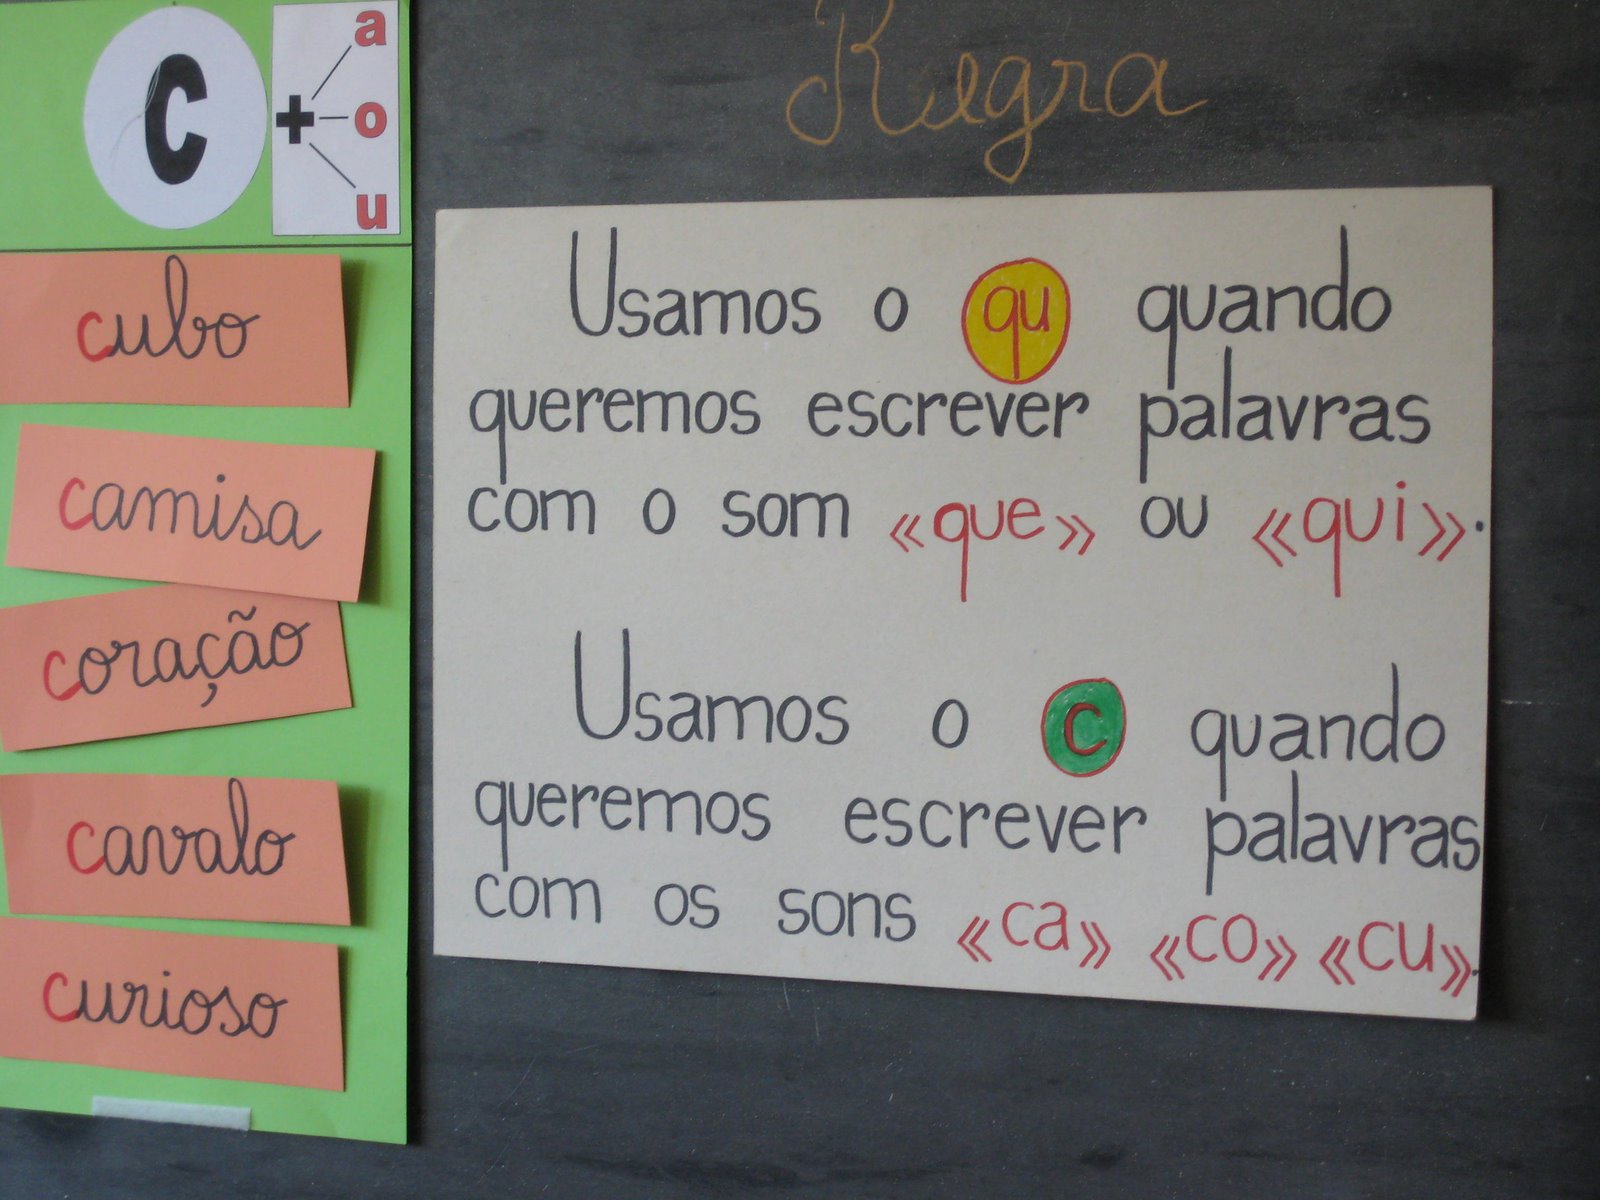 C + a
o
u
cubo
camisa
coração
cavalo
curioso
Regra
Usamos o qu quando
queremos escrever palavras
com o som «que» ou «qui».
Usamos o c quando
queremos escrever palavras
com os sons «ca» «co» «cu».